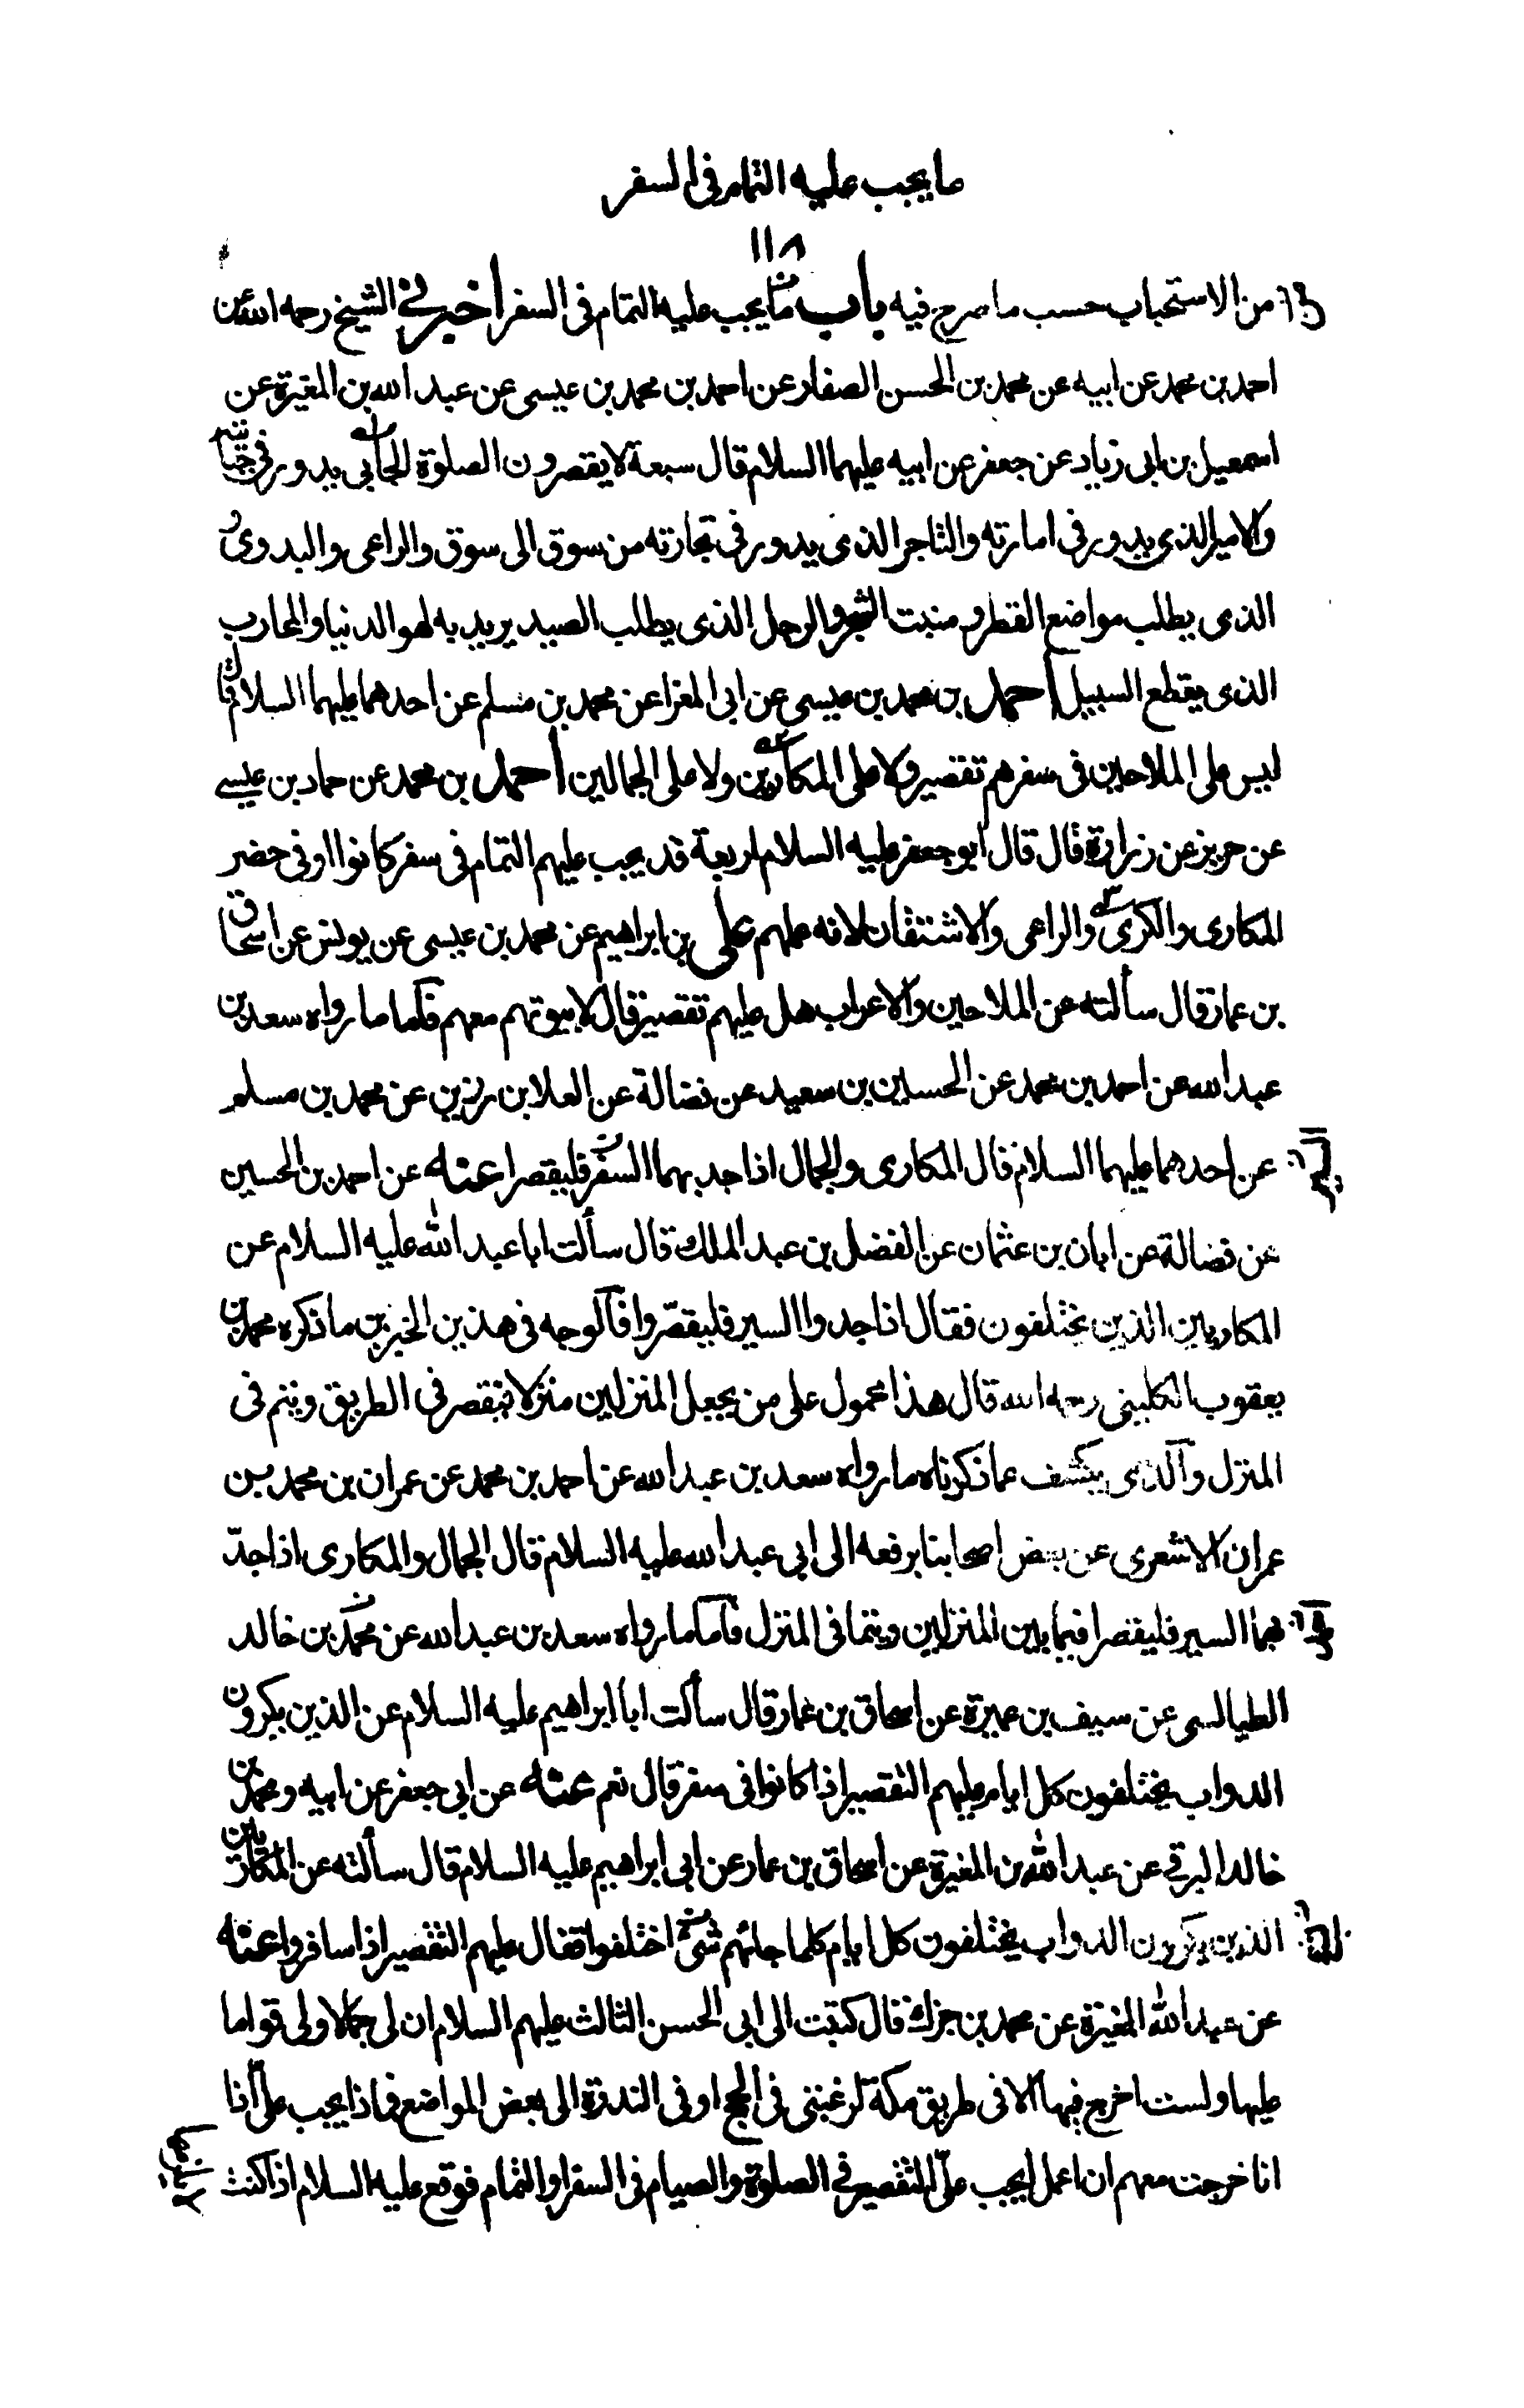 ما يجب عليه التمام في السفر
١١٨
من الاستحباب حسب ما صرح فيه باب ما يجب عليه التمام في السفر اخبرني الشيخ رحمه الله عن
احمد بن محمد عن ابيه عن محمد بن الحسن الصفار عن احمد بن محمد بن عيسى عن عبد الله بن المغيرة عن
اسمعيل بن ابى زياد عن جعفر عن ابيه عليهما السلام قال سبعة لا يقصرون الصلوة الجابى يدور في جبايته
والامير الذي يدور في امارته والتاجر الذى يدور في تجارته من سوق الى سوق والراعى والبدوى
الذى يطلب مواضع القطر و منبت الشجر والرجل الذى يطلب الصيد يريد به لهو الدنيا والمحارب
الذى يقطع السبيل احمد بن محمد بن عيسى عن ابى المغرا عن محمد بن مسلم عن احدهما عليهما السلام قال
ليس على الملاحين فى سفرهم تقصير ولا على المكارين ولا على الجمالين احمد بن محمد عن حماد بن عيسى
عن حريز عن زرارة قال قال ابو جعفر عليه السلام اربعة قد يجب عليهم التمام فى سفر كانوا او فى حضر
المكارى والكرى والراعى والاشتقان لانه عملهم على بن ابراهيم عن محمد بن عيسى عن يونس عن اسحاق
بن عمار قال سألته عن الملاحين والاعراب هل عليهم تقصير قال لا بيوتهم معهم فاما ما رواه سعد بن
عبد الله عن احمد بن محمد عن الحسين بن سعيد عن فضالة عن العلا بن رزين عن محمد بن مسلم
عن احدهما عليهما السلام قال المكارى والجمال اذا جد بهما السفر فليقصرا عنه عن احمد بن الحسين
عن فضالة عن ابان بن عثمان عن الفضل بن عبد الملك قال سألت ابا عبد الله عليه السلام عن
المكاريين الذين يختلفون فقال اذا جدوا السير فليقصّروا فالوجه فى هذين الخبرين ما ذكره محمد بن
يعقوب الكلينى رحمه الله قال هذا محمول على من يجعل المنزلين منزلا فيقصر في الطريق ويتم فى
المنزل والذى يكشف عما ذكرناه ما رواه سعد بن عبد الله عن احمد بن محمد عن عمران بن محمد بن
عمران الاشعرى عن بعض اصحابنا يرفعه الى ابى عبد الله عليه السلام قال الجمال والمكارى اذا جدّ
بهما السير فليقصرا فيما بين المنزلين ويتما فى المنزل فاما ما رواه سعد بن عبد الله عن محمد بن خالد
الطيالسى عن سيف بن عميرة عن اسحاق بن عمار قال سألت ابا ابراهيم عليه السلام عن الذين يكرون
الدواب يختلفون كل ايام عليهم التقصير اذا كانوا فى سفر قال نعم عنه عن ابى جعفر عن ابيه و محمد بن
خالد البرقي عن عبد الله بن المغيرة عن اسحاق بن عمار عن ابى ابراهيم عليه السلام قال سألته عن المكارين
الذين يكرون الدواب يختلفون كل ايام كلما جائهم شئ اختلفوا فقال عليهم التقصير اذا سافروا عنه
عن عبد الله المغيرة عن محمد بن جزك قال كتبت الى ابى الحسن الثالث عليهم السلام ان لى جمالا ولى قواما
عليها ولست اخرج فيها الا فى طريق مكة لرغبتى فى الحج او فى الندرة الى بعض المواضع فماذا يجب علىّ اذا
انا خرجت معهم ان اعمل ايجب علىّ التقصير في الصلوة والصيام فى السفر او التمام فوقع عليه السلام اذا كنت